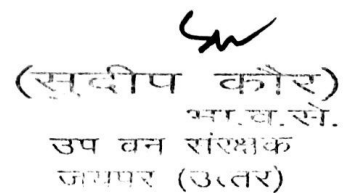 (सुदीप कौर)
भा.व.से.
उप वन संरक्षक
जयपुर (उत्तर)